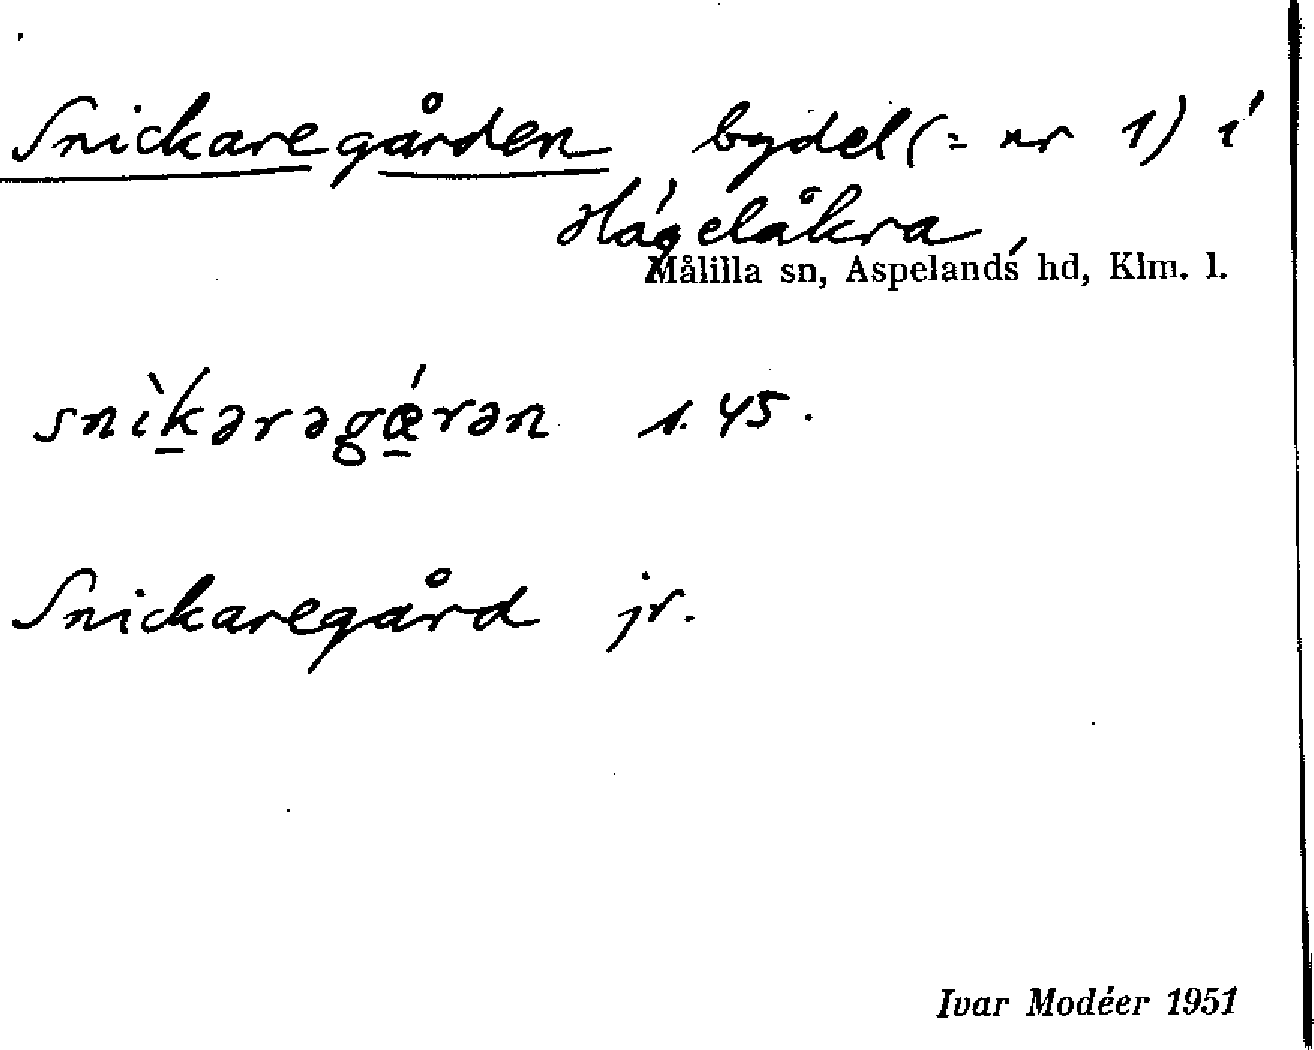 Snickaregården bydel (= nr 1) i
Hágelåkra,
Målilla sn, Aspelands hd, Klm. l.
snìk̲ərəgœ̲́rən 1. 45.
Snickaregård jr.
Ivar Modéer 1951